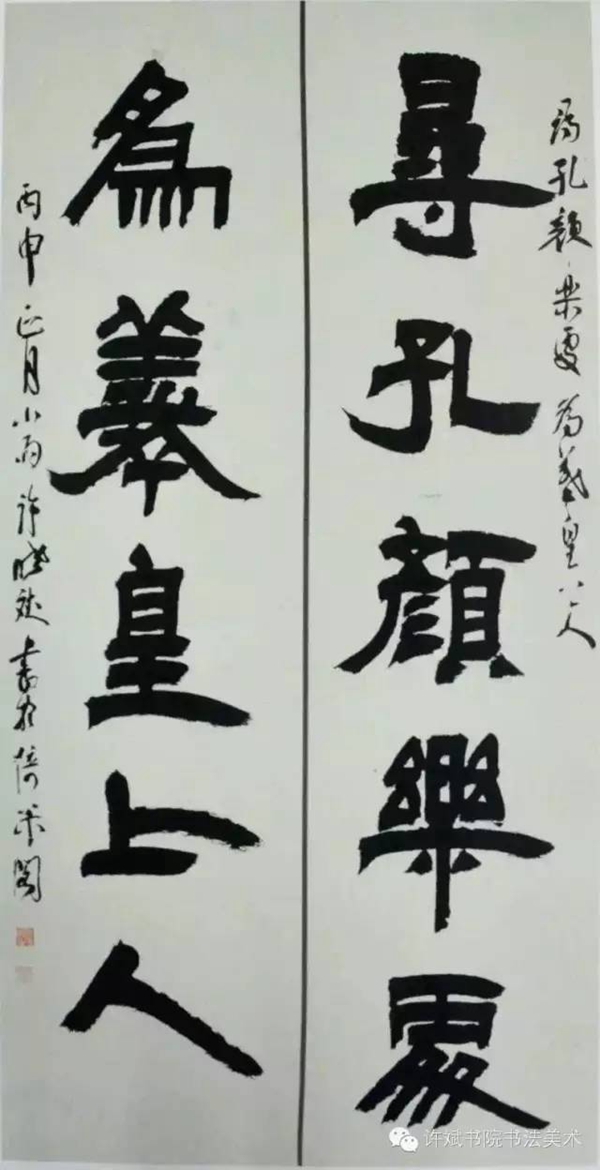 孔顏樂處 為羲皇上人
尋孔顏樂處
為羲皇上人
丙申正月小雨許斌書於米閣
许斌书院书法美术